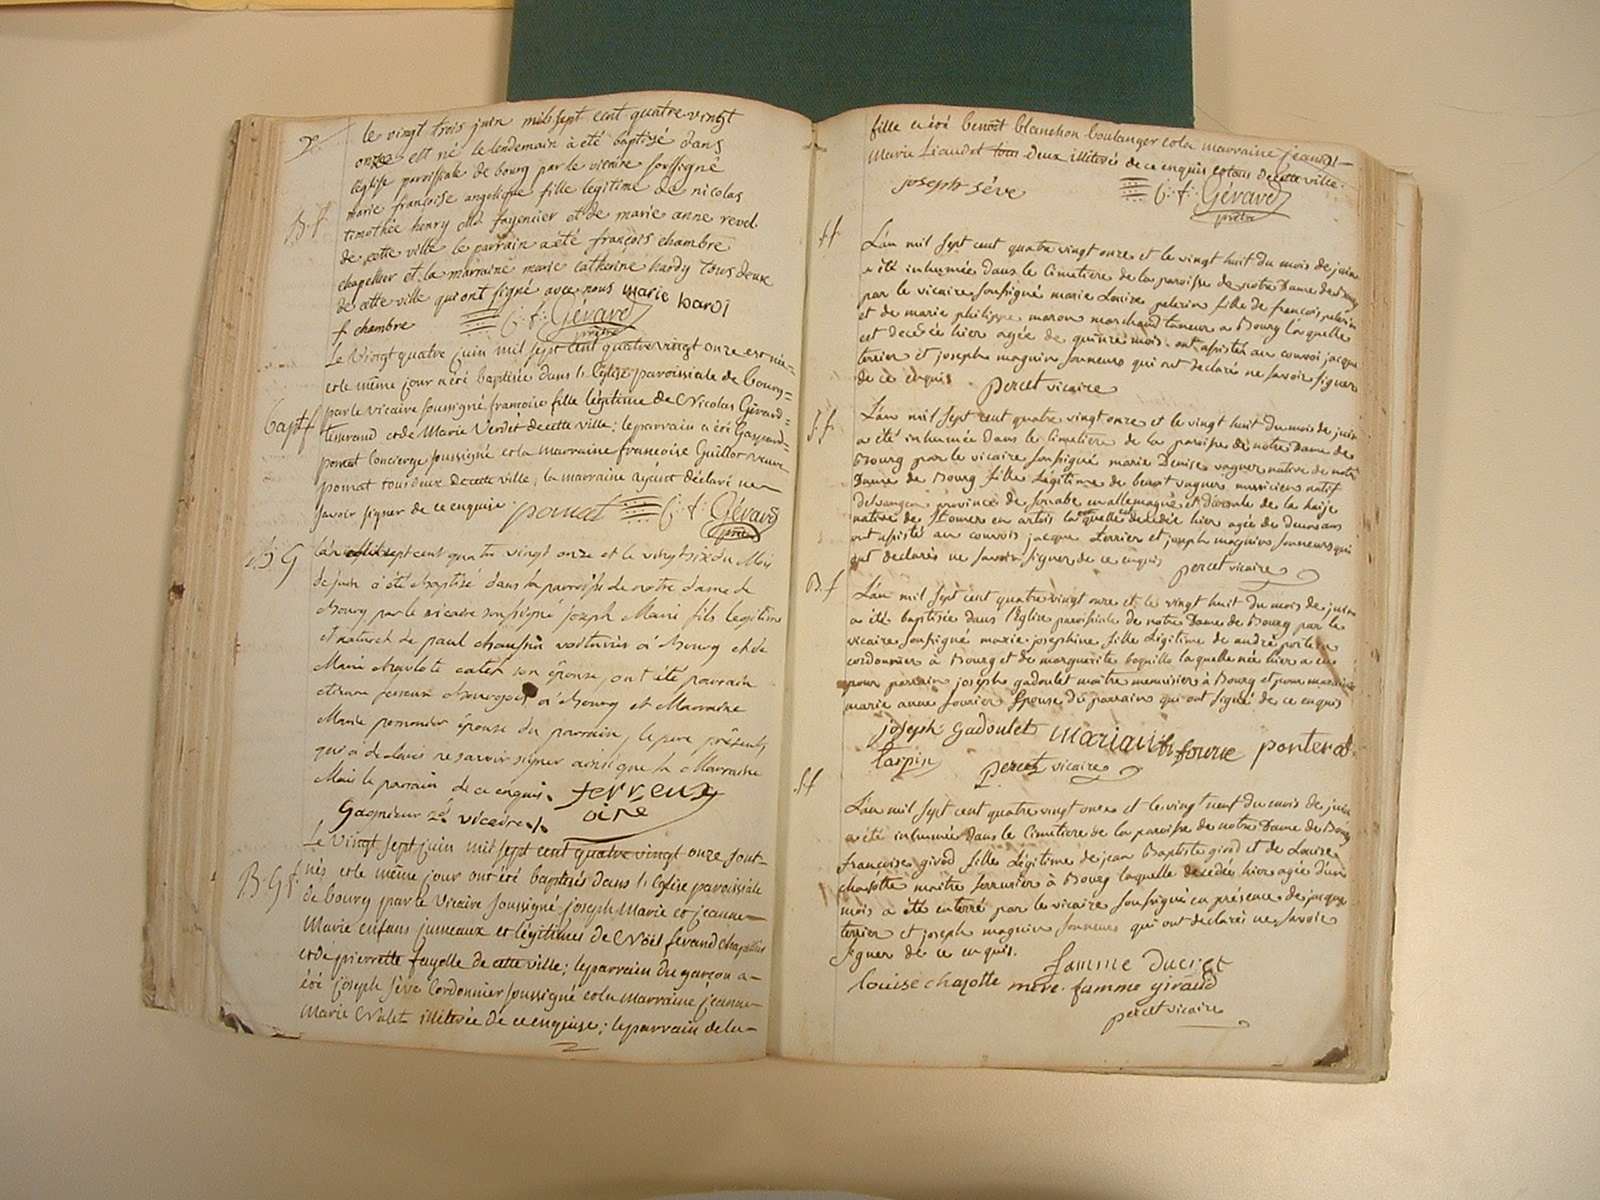 le vingt trois juin mil sept cent quatre vingt
onze est né le lendemain à été baptisé dans
l'église paroissiale de bourg par le vicaire soussigné
marie françoise angelique fille legitime de nicolas
B. f
timothée henry fayencier et de marie anne revel
de cette ville le parrain a été françois chambre
chapellier et la marraine marie catherine hardy tous deux
de cette ville qui ont signé avec nous marie hardi
f chambre C. f. Gérard
prêtre
Le Vingt quatre juin mil sept cent quatre vingt onze est née
et le même jour a été baptisée dans l'Eglise paroissiale de bourg
par le vicaire soussigné francoise fille légitime de Nicolas Gérard
bapt f
tisserand et de Marie Verdet de cette ville; le parrain a été Gaspard
pomat Concierge soussigné et la marraine francoise Guillot veuve
pomat tous deux de cette ville, la marraine ayant déclaré ne
savoir signer de ce enquise pomat C. f. Gérard
prêtre
B G
L'an mil sept cent quatre vingt onze et le vingt six du Mois
de juin a été baptisé dans la paroisse de notre dame de
Bourg par le vicaire soussigné joseph Marie fils legitime
et naturel de paul chaussin voiturier à Bourg et de
Marie charlote son épouse, ont été parrain
etienne perreux Bourgeois à Bourg et Marraine
Marie épouse du parrain, le pere présent
qui a declaré ne savoir signer ainsi que la Marraine
Mais le parrain de ce enquis. ferreux
Gagnieur 2d vicaire
Le Vingt sept juin mil sept cent quatre vingt onze sont
B. G f.
nés et le même jour ont été baptisés dans l'Eglise paroissiale
de bourg par le Vicaire soussigné joseph Marie et jeanne
Marie enfans jumeaux et légitimes de Noël ferand chapellier
et de pierrette fayolle de cette ville; le parrain du garçon a
été joseph Sève Cordonnier soussigné et la Marraine jeanne
Marie illiterée de ce enquise; le parrain de la
fille a été benoît blanchon boulanger et la marraine jeanne
Marie Liaudet tous deux illiterés de ce enquis et tous de cette ville.
joseph sève C. f. Gérard
prêtre
S f
L'an mil sept cent quatre vingt onze et le vingt huit du mois de juin
a été inhumée dans le Cimetiere de la paroisse de notre Dame de Bourg
par le vicaire soussigné marie Louise pelerin fille de françois pelerin
et de marie philippe maron marchand tanneur a Bourg laquelle
est decédée hier agée de quinze mois. ont assistés au convoi jacque
terrier et joseph magnin sonneurs qui ont declaré ne savoir signer
de ce enquis percet vicaire
S. f.
L'an mil sept cent quatre vingt onze et le vingt huit du mois de juin
a été inhumée dans le Cimetiere de la paroisse de notre Dame de
Bourg par le vicaire soussigné marie Denise vagner native de notre
Dame de Bourg fille Légitime de benoit vagner musicien natif
province de souabe en allemagne et de la haije
native de St omer en artois laquelle est decédée hier agée de deux ans
ont assisté au convois jacque terrier et joseph magnin sonneurs qui
ont declarés ne savoir signer de ce enquis percet vicaire
B. f
L'an mil sept cent quatre vingt onze et le vingt huit du mois de juin
a été baptisée dans l'Eglise paroissiale de notre Dame de Bourg par le
vicaire soussigné marie josephine fille Légitime de andré
cordonnier à Bourg et de marguerite laquelle née hier a eu
pour parrain joseph gadoulet maitre menuisier à Bourg et pour marraine
marie anne fourier Epouse du parrain qui ont signé de ce enquis
joseph gadoulet
percet vicaire
S f
L'an mil sept cent quatre vingt onze et le vingt neuf du mois de juin
a été inhumée dans le Cimetiere de la paroisse de notre Dame de Bourg
françoise girod fille Légitime de jean Baptiste girod et de Louise
chazotte maître serrurier à Bourg laquelle decédée hier agée d'un
mois a été enterré par le vicaire soussigné en présence de jacque
terrier et joseph magnin sonneurs qui ont declaré ne savoir
signer de ce enquis. famme ducret
louise chazotte mère. famme giraud
percet vicaire